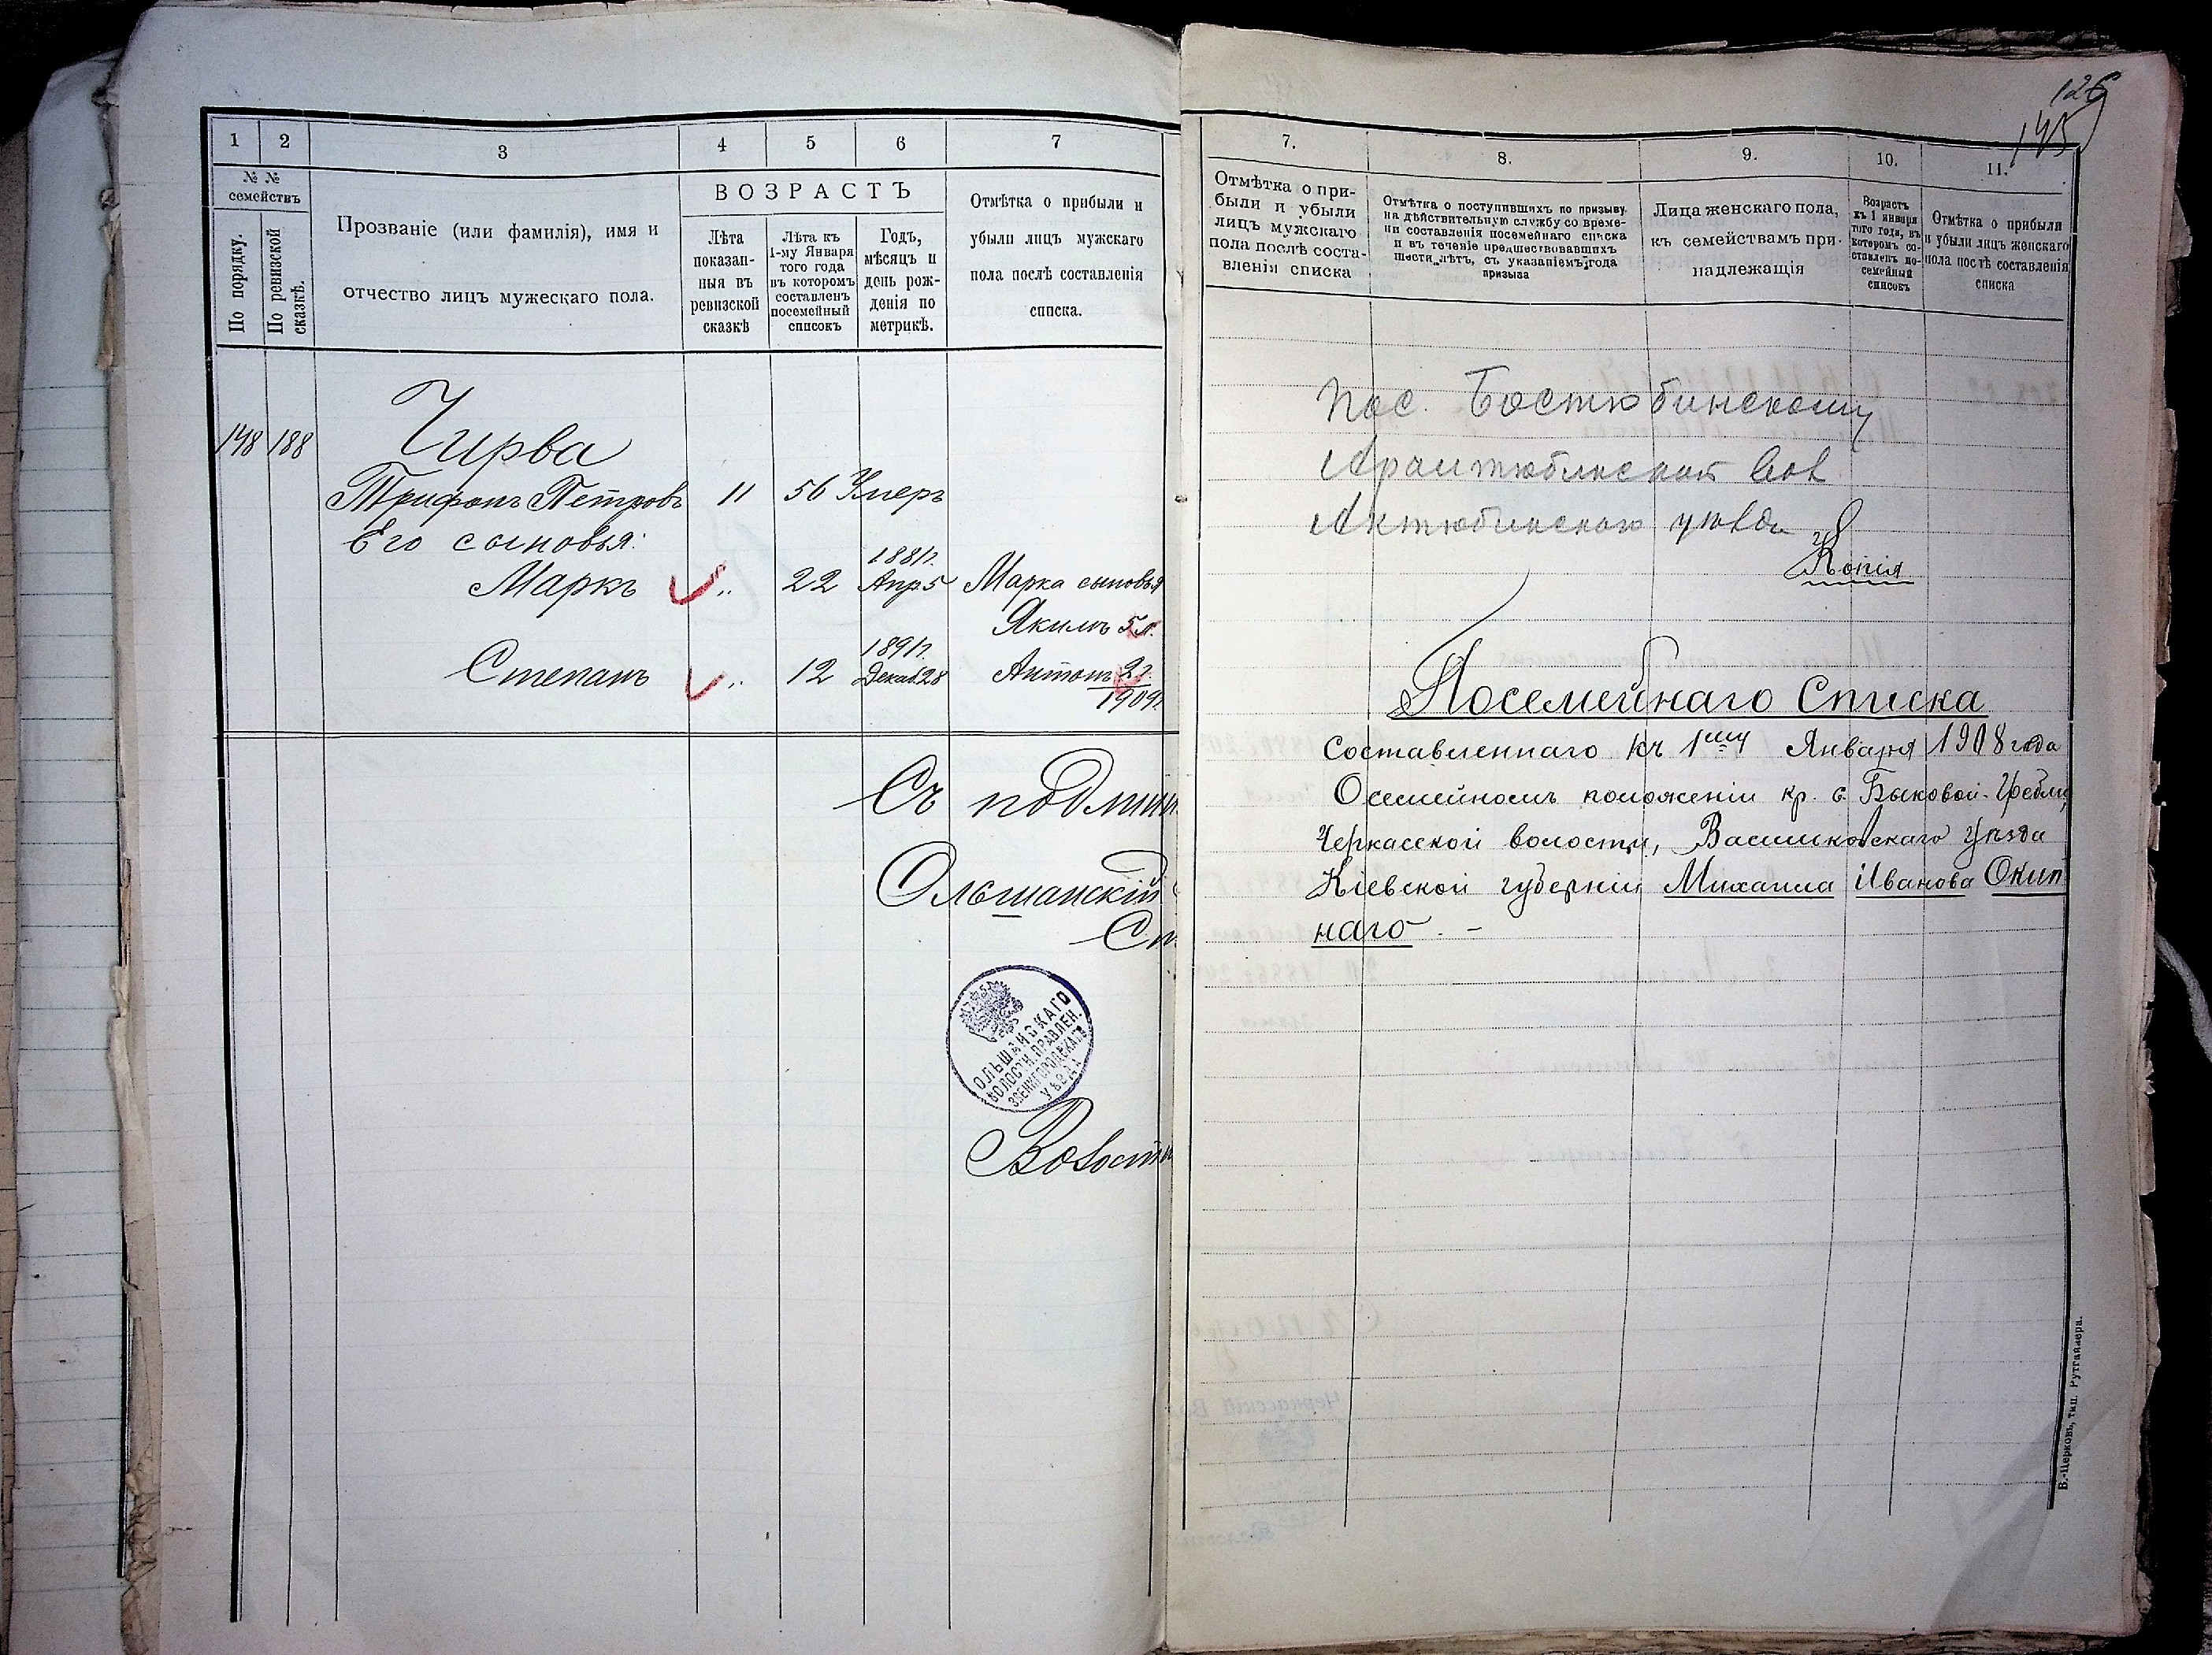 1 2 3 4 5 6 7
№ № семействъ
По порядку.
По ревизской сказкѣ.
Прозваніе (или фамилія), имя и
отчество лицъ мужескаго пола.
ВОЗРАСТЪ
Лѣта
показан-
ныя въ
ревизской
сказкѣ
Лѣта къ
1-му Января
того года
въ которомъ
составленъ
посемейный
списокъ
Годъ,
мѣсяцъ и
день рож-
денія по
метрикѣ.
Отмѣтка о прибыли и
убыли лицъ мужскаго
пола послѣ составленія
списка.
Чирва
148 188
Трифонъ Петровъ 11 56 Умеръ
Его сыновья:
1881г.
Маркъ „ 22 Апр. 5 Марка сыновья
Якимъ 5 л.
1891г.
Степанъ „ 12 Декаб. 28 Антонъ 2 г.
1909г.
Съ подлин
Ольшанскій
Сп
ОЛЬШАНСКАГО
ВОЛОСТН. ПРАВЛЕН.
ЗВЕНИГОРОДСКАГО
УѢЗДА
Волостн
126
145
7. 8. 9. 10. 11.
Отмѣтка о при-
были и убыли
лицъ мужскаго
пола послѣ соста-
вленія списка
Отмѣтка о поступившихъ по призыву
на дѣйствительную службу со време-
ни составленія посемейнаго списка
и въ теченіе предшествовавшихъ
шести лѣтъ, съ указаніемъ года
призыва
Лица женскаго пола,
къ семействамъ при-
надлежащія
Возрастъ
къ 1 января
того года, въ
которомъ со-
ставленъ по-
семейный
списокъ
Отмѣтка о прибыли
и убыли лицъ женскаго
пола послѣ составленія
списка
пос. Бостюбинскому
Актюбинскаго уѣзда
Копія
Посемейнаго Списка
Составленнаго къ 1му Января 1908 года
О семейномъ положеніи кр. с. Быковой-Гребли
Черкасской волости, Васильковскаго уѣзда
Кіевской губерніи Михаила Иванова Окип
наго. -
Б.-Церковь, тип. Рутгайзера.